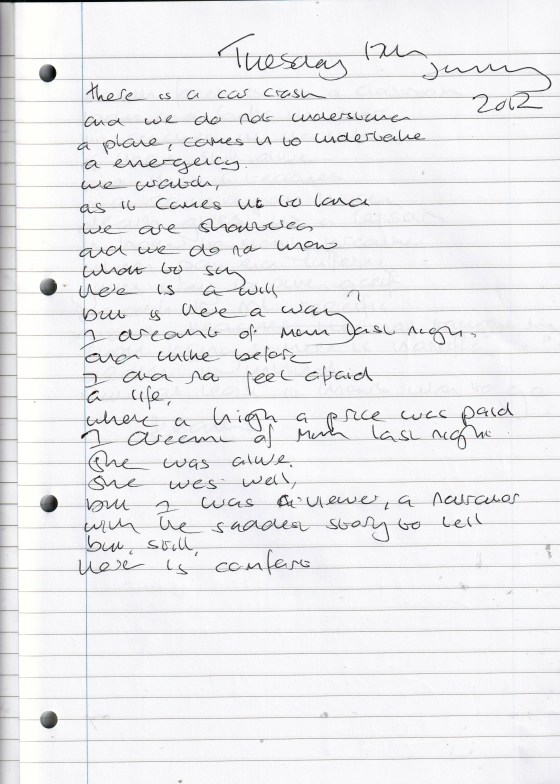 Tuesday 17th January
2012
there is a car crash
and we do not understand
a plane, comes in to undertake
a emergency.
we watch,
as it comes in to land
we are shattered
and we do not know
what to say
there is a will
but is there a way?
I dreamt of Mum last night.
and unlike before
I did not feel afraid
a life,
where a high a price was paid
I dreamt of Mum last night.
She was alive.
She was well,
but I was a viewer, a narrator
with the saddest story to tell
but, still,
there is comfort